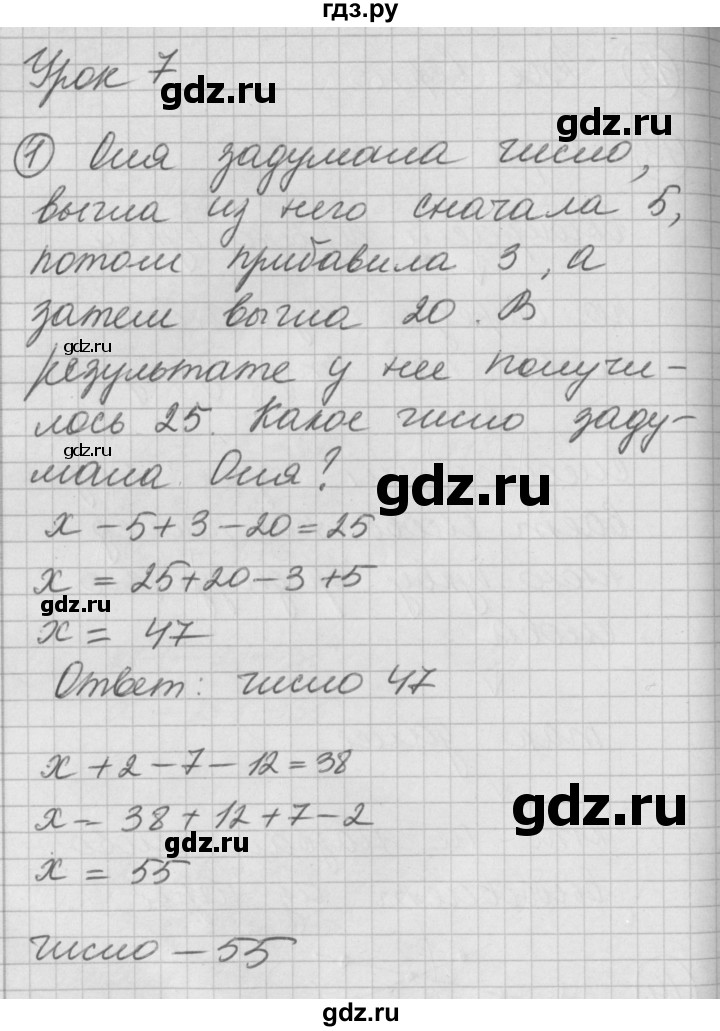 гдз.ру
Урок 7
gdz.ru
gdz.ru
① Оля задумала число,
вычла из него сначала 5,
потом прибавила 3, а
затем вычла 20. В
gdz.ru
результате у нее получи-
лось 25. Какое число заду-
gdz.ru
мала Оля?
gdz.ru
x - 5 + 3 - 20 = 25
x = 25 + 20 - 3 + 5
gdz.ru
x = 47
Ответ: число 47
x + 2 - 7 - 12 = 38
x = 38 + 12 + 7 - 2
gdz.ru
gdz.ru
x = 55
число - 55
gdz.ru